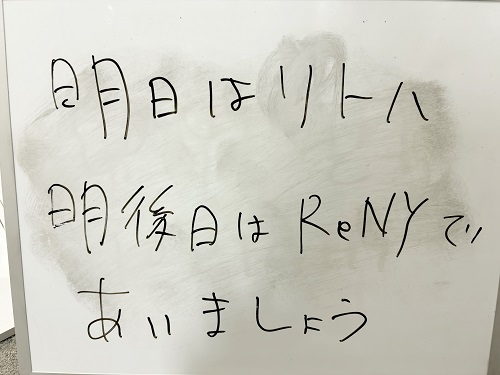 明日はリトハ
明後日はReNYで
あいましょう